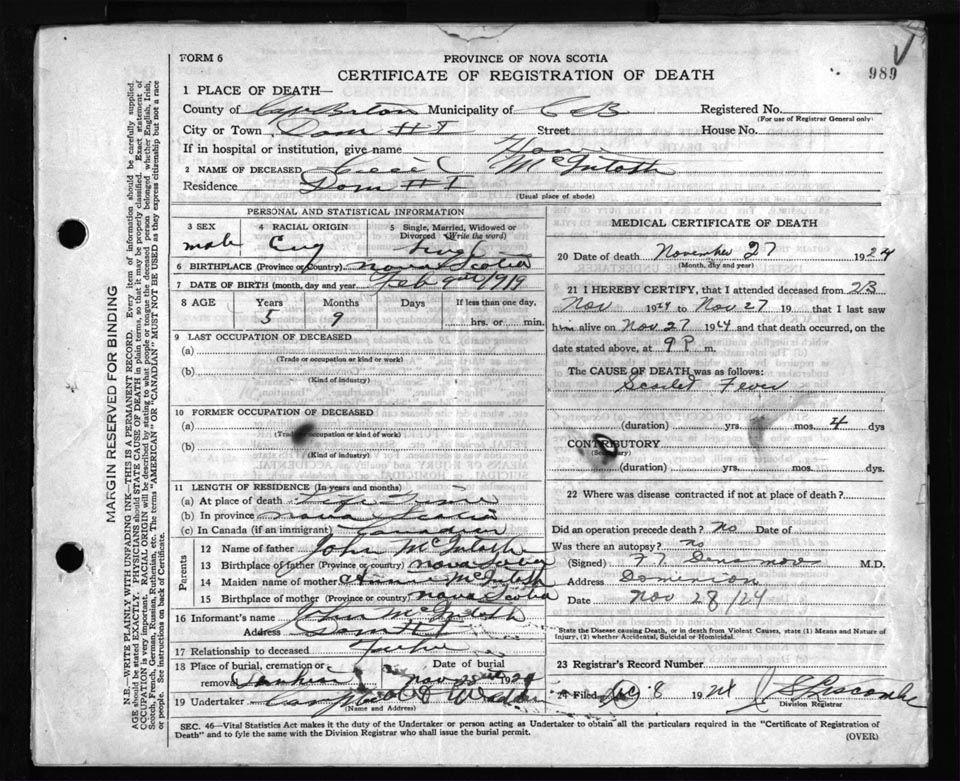 FORM 6
PROVINCE OF NOVA SCOTIA
989
CERTIFICATE OF REGISTRATION OF DEATH
1 PLACE OF DEATH—
County of Cape Breton Municipality of C B Registered No.
(For use of Registrar General only)
City or Town Dom # 1 Street House No.
If in hospital or institution, give name Home
2 NAME OF DECEASED McIntosh
Residence Dom # 1
(Usual place of abode)
PERSONAL AND STATISTICAL INFORMATION
3 SEX 4 RACIAL ORIGIN 5 Single, Married, Widowed or Divorced (Write the word)
male Eng Single
6 BIRTHPLACE (Province or Country) Nova Scotia
7 DATE OF BIRTH (month, day and year) Feb 9th 1919
8 AGE Years Months Days If less than one day,
5 9 hrs. or min.
9 LAST OCCUPATION OF DECEASED
(a)
(Trade or occupation or kind or work)
(b)
(Kind of industry)
10 FORMER OCCUPATION OF DECEASED
(a)
(Trade or occupation or kind of work)
(b)
(Kind of industry)
11 LENGTH OF RESIDENCE (In years and months)
(a) At place of death Life Time
(b) In province Nova Scotia
(c) In Canada (if an immigrant) Canadian
Parents
12 Name of father John McIntosh
13 Birthplace of father (Province or country) Nova Scotia
14 Maiden name of mother Annie McIntosh
15 Birthplace of mother (Province or country) Nova Scotia
16 Informant's name John McIntosh
Address Dom # 1
17 Relationship to deceased Father
18 Place of burial, cremation or removal Date of burial
Nov 28th 1924
19 Undertaker
(Name and Address)
MEDICAL CERTIFICATE OF DEATH
20 Date of death November 27 1924
(Month, day and year)
21 I HEREBY CERTIFY, that I attended deceased from 23
Nov 1924 to Nov 27 19 that I last saw
him alive on Nov 27 1924 and that death occurred, on the
date stated above, at 9 P. m.
The CAUSE OF DEATH was as follows:
Scarlet Fever
(duration) yrs. mos. 4 dys
CONTRIBUTORY
(Secondary)
(duration) yrs. mos. dys.
22 Where was disease contracted if not at place of death?
Did an operation precede death? No Date of
Was there an autopsy? No
(Signed) M.D.
Address Dominion
Date Nov 28/24
State the Disease causing Death, or in death from Violent Causes, state (1) Means and Nature of
Injury, (2) whether Accidental, Suicidal or Homicidal.
23 Registrar's Record Number
24 Filed Dec 8 1924
Division Registrar
SEC. 46—Vital Statistics Act makes it the duty of the Undertaker or person acting as Undertaker to obtain all the particulars required in the "Certificate of Registration of
Death" and to fyle the same with the Division Registrar who shall issue the burial permit.
(OVER)
MARGIN RESERVED FOR BINDING
N. B.—WRITE PLAINLY WITH UNFADING INK—THIS IS A PERMANENT RECORD. Every item of information should be carefully supplied.
AGE should be stated EXACTLY. PHYSICIANS should STATE CAUSE OF DEATH in plain terms, so that it may be properly classified. Exact statement of
OCCUPATION is very important. RACIAL ORIGIN will be described by stating to what people or tongue the deceased person belonged whether English, Irish,
Scotch, French, German, Russian, Ruthenian, etc. The terms "AMERICAN" OR "CANADIAN" MUST NOT BE USED as they express citizenship but not a race
or people. See instructions on back of Certificate.